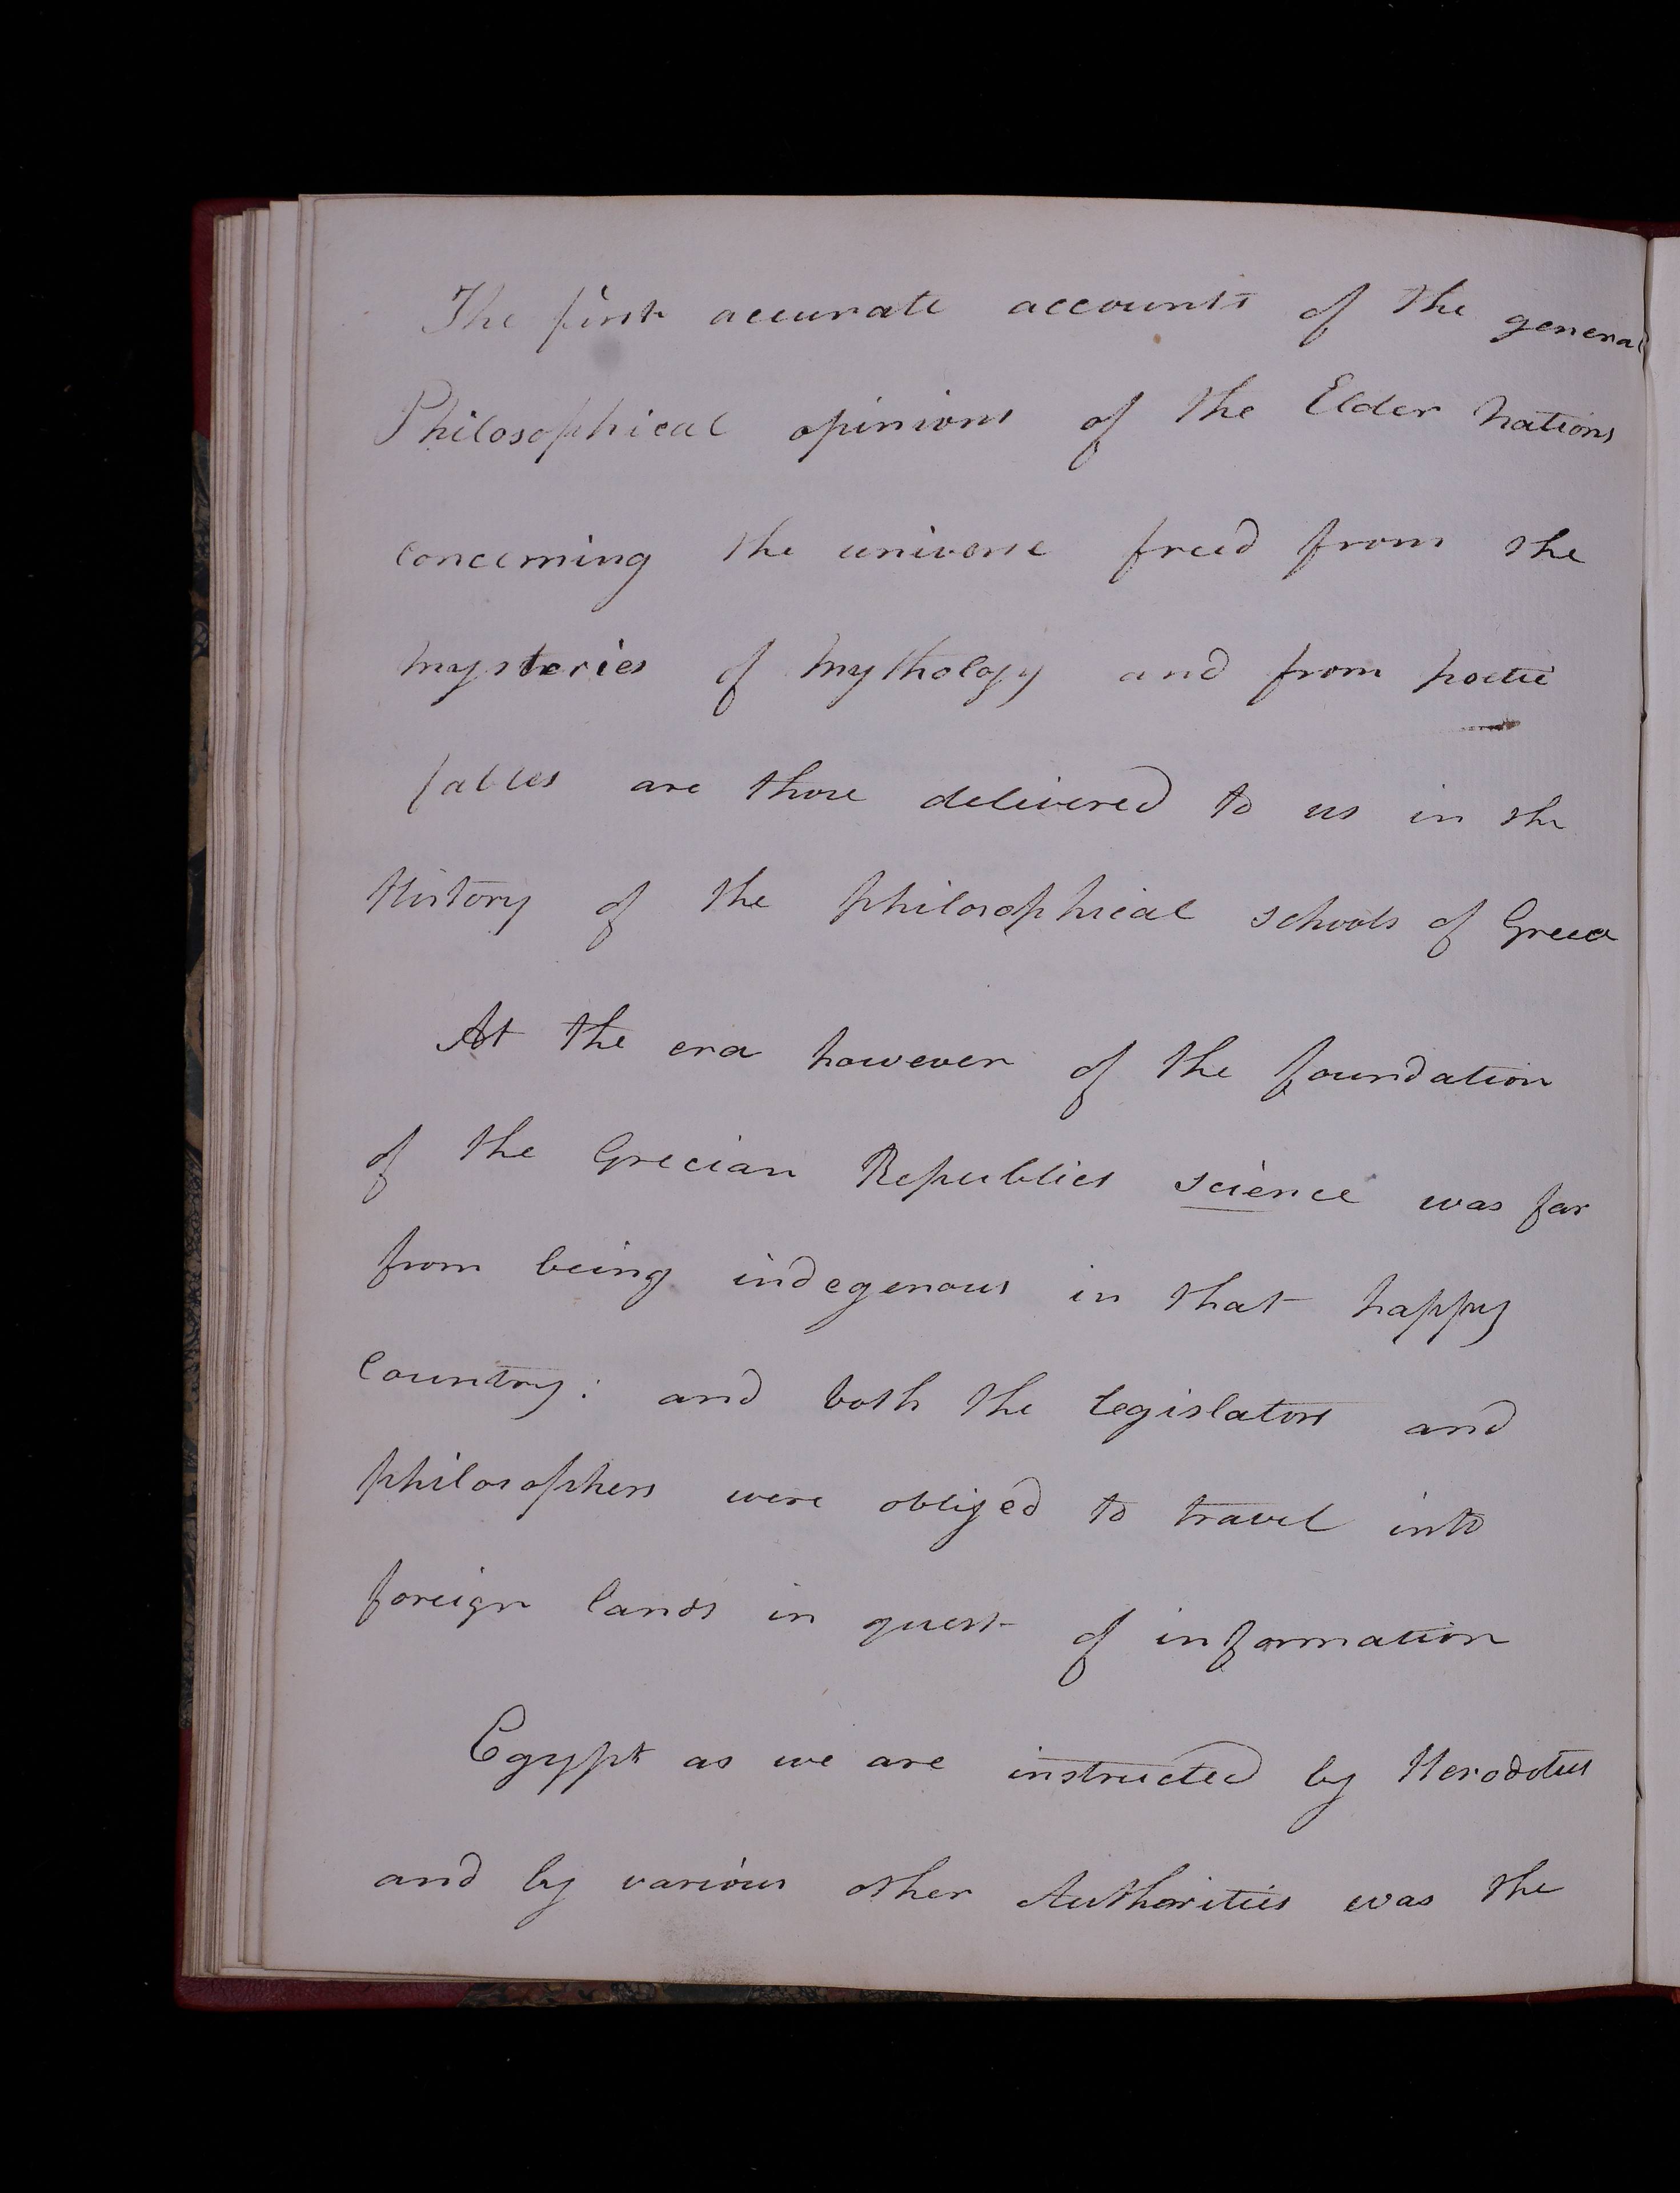 The first accurate accounts of the general
Philosophical opinions of the Elder nations
concerning the universe freed from the
mysteries of Mythology and from poetic
fables are those delivered to us in the
History of the philosophical schools of Greece
At the era however of the foundation
of the Grecian Republics science was far
from being indegenous in that happy
Country: and both the legislators and
philosophers were obliged to travel into
foreign lands in quest of information
Egypt as we are instructed by Herodotus
and by various other Authorities was the